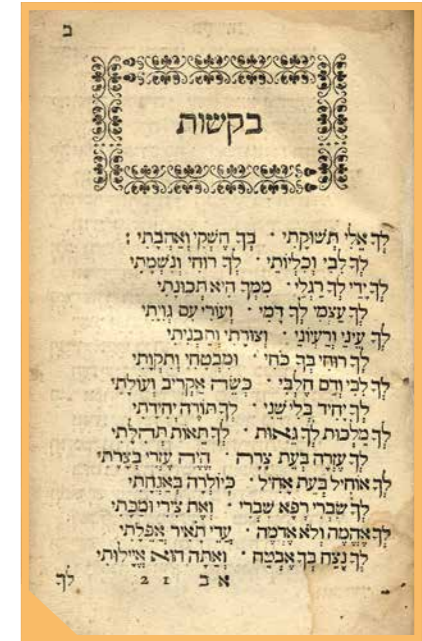 ב
בקשות
לְךָ אֵלִי תְּשׁוּקָתִי · בְּךָ חֶשְׁקִי וְאַהֲבָתִי :
לְךָ לִבִּי וְכִלְיוֹתַי · לְךָ רוּחִי וְנִשְׁמָתִי
לְךָ יָדַי לְךָ רַגְלַי · מִמְּךָ הִיא תְכוּנָתִי
לְךָ עַצְמִי לְךָ דָמִי · וְעוֹרִי עִם גְּוִיָּתִי
לְךָ עֵינַי וְרַעְיוֹנַי · וְצוּרָתִי וְתַבְנִיתִי
לְךָ רוּחִי בְּךָ כֹּחִי · וּמִבְטָחִי וְתִקְוָתִי
לְךָ לִבִּי וְדַם חֶלְבִּי · כְּשֶׂה אַקְרִיב וְעוֹלָתִי
לְךָ יָחִיד בְּלִי שֵׁנִי · לְךָ תּוֹדֶה יְחִידָתִי
לְךָ מַלְכוּת לְךָ גֵאוּת · לְךָ תֵּאוֹת תְּהִלָּתִי
לְךָ עֶזְרָה בְּעֵת צָרָה · הֱיֵה עֶזְרִי בְּצָרָתִי
לְךָ אוֹחִיל בְּעֵת אָחִיל · כְּיוֹלֵדָה בְּאַנְחָתִי
לְךָ שִׂבְרִי רְפָא שִׁבְרִי · וְאֶת צִירִי וּמַכָּתִי
לְךָ אֶהֱמֶה וְלֹא אֶדְמֶה · עֲדֵי תָאִיר אֲפֵלָתִי
לְךָ נֶצַח בְּךָ אֶבְטַח · וְאַתָּה הוּא אֱיָלוּתִי
א ב 21 לְךָ